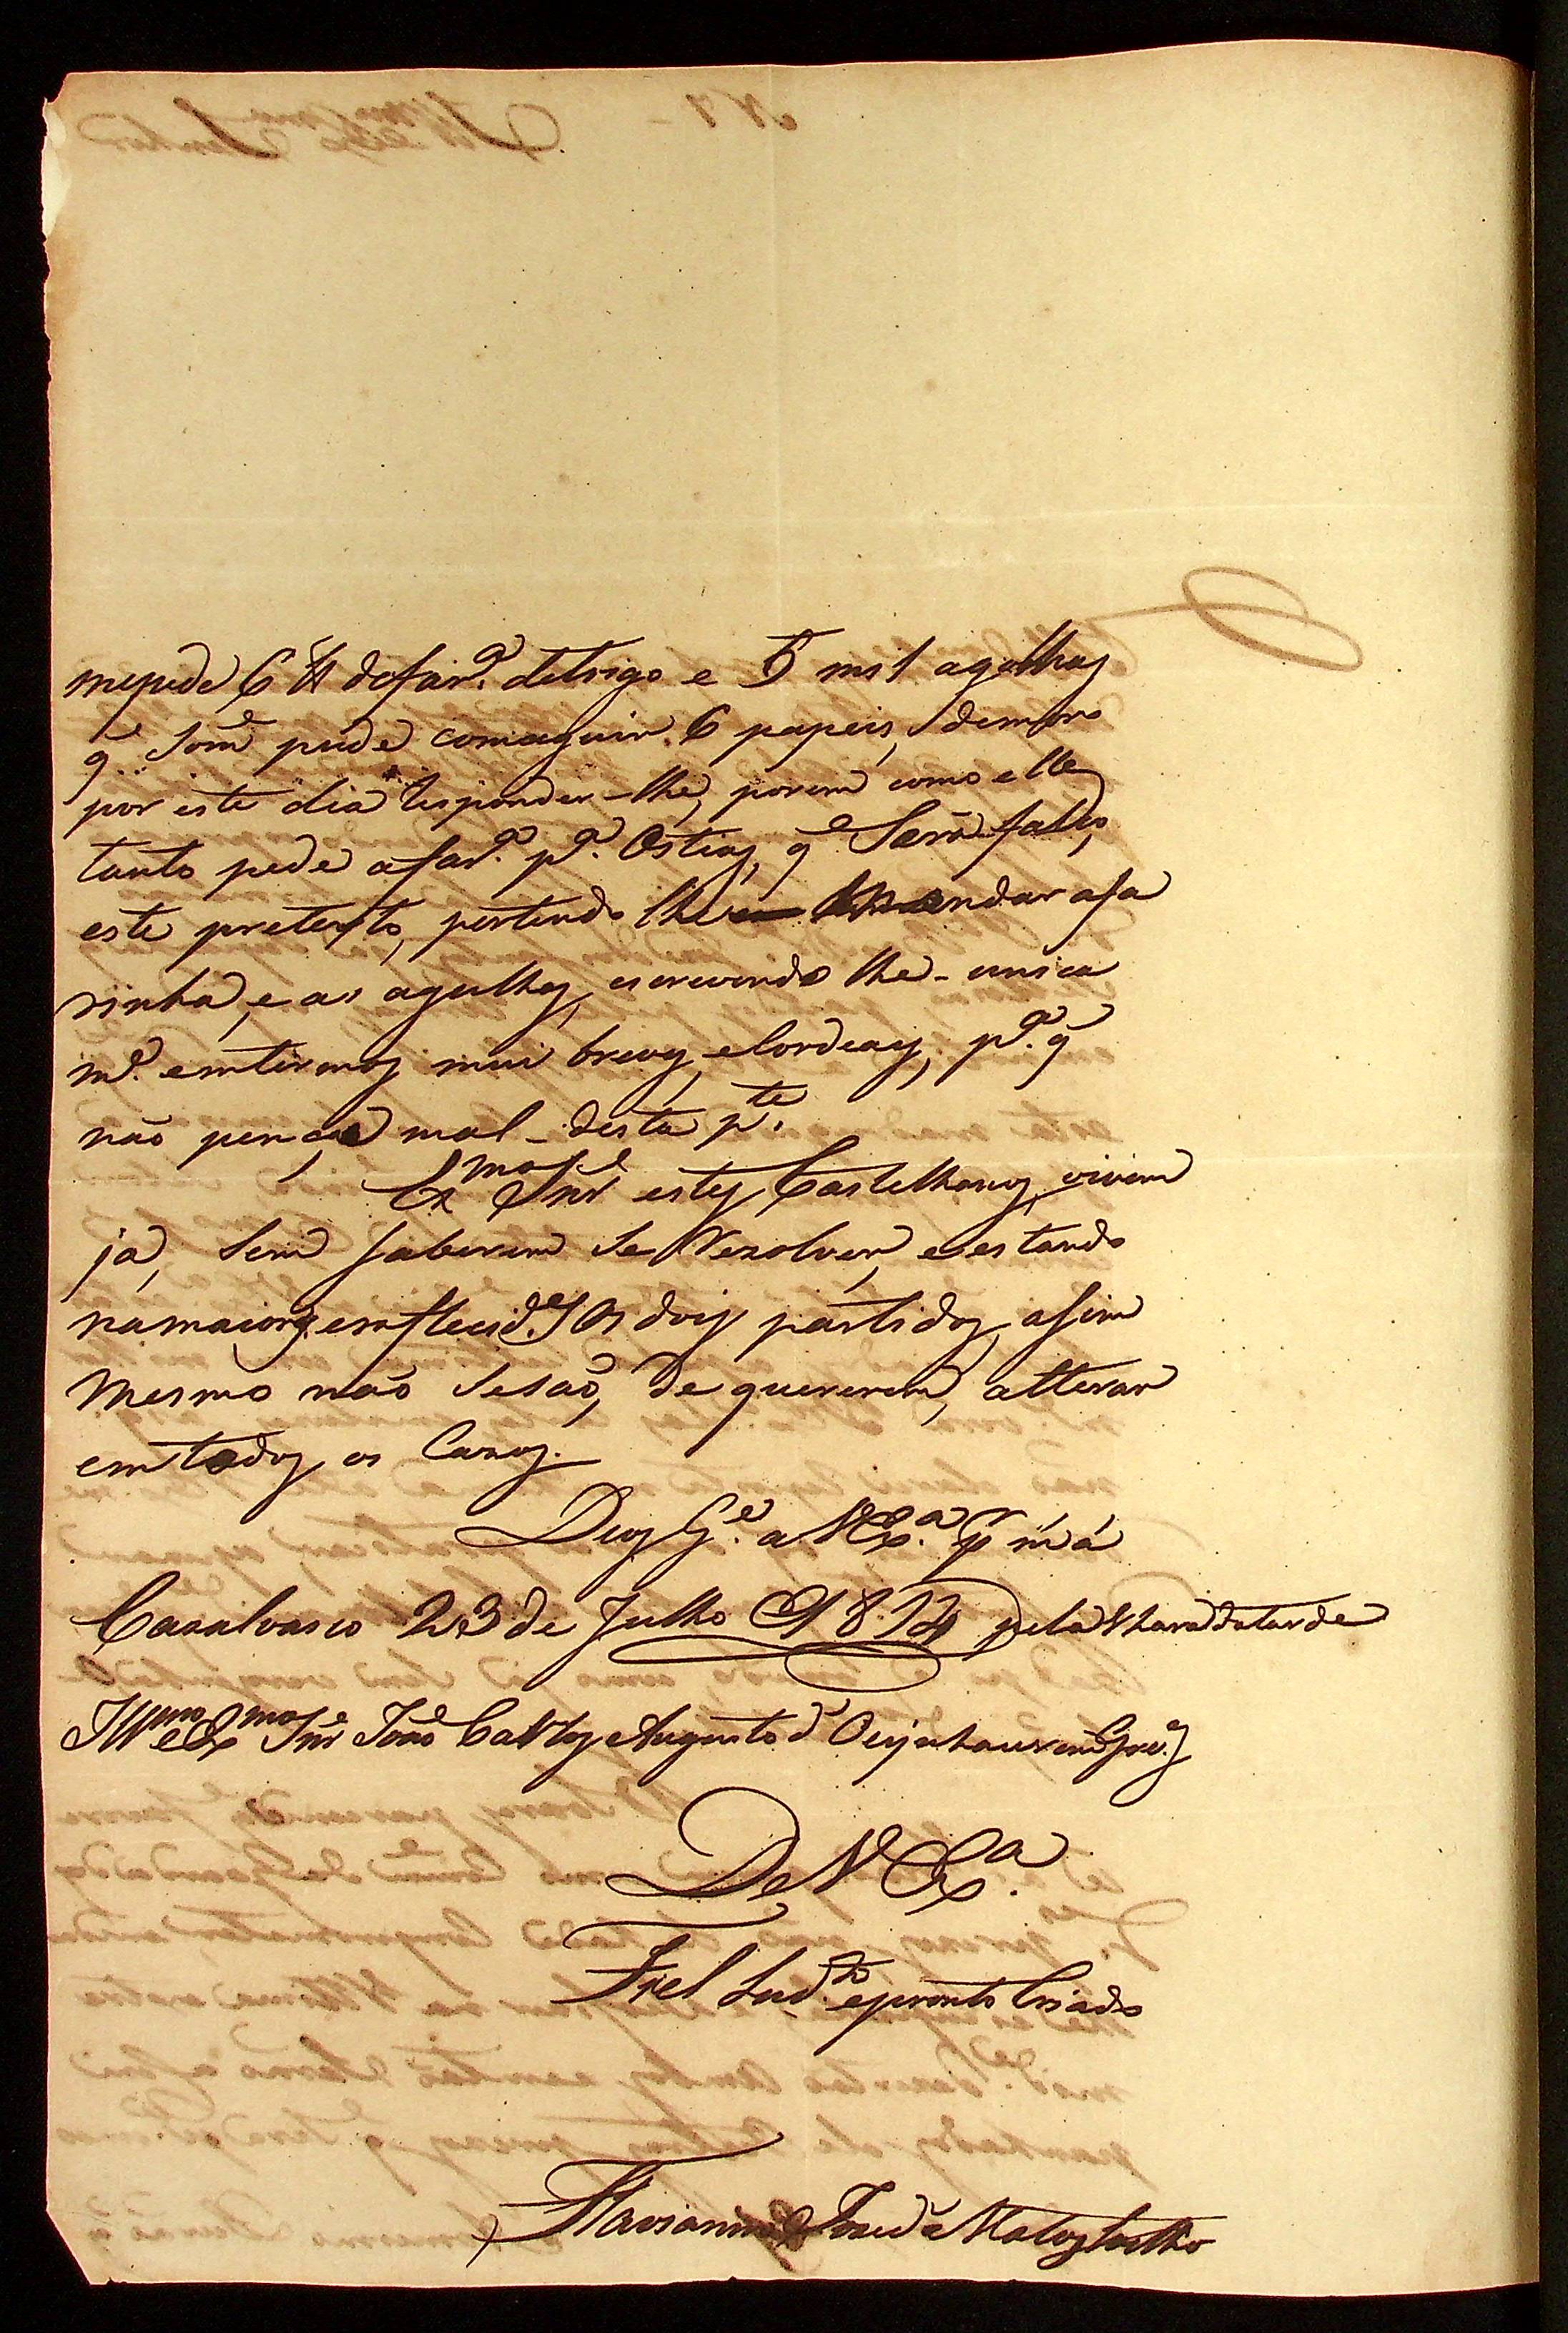 mepede 6 ₶ defar.ª detrigo e 5 mil agulhas
q̃ som.e pude comseguir 6 papeis, demoro
por este dia responder-lhe, porem como elle
tanto pede afar.ª p.ª Ostias, q̃ Será falço
este pretexto, pertendo lhe mandar afa
rinha, e as agulhas, escrevendo lhe-unica
m.e emtermos mui breves, elordeais, p.ª q̃
não pençe mal-desta p.te
Ex.mo Snr̃ estes Castelhanos, vivem
já, Sem saberem Se Rezolver, e estando
namaior os dois partidos, asim
mesmo não deSão, de quererem, alterar
emtodos os Cazos.
Deos G.e a V Ex.ª p.r m. a.
Cazalvasco 23 de Julho 1814 pela hora datarde
Ill.mo e Ex.mo Snr̃ João Carlos Augusto d' Oeynhausen Grê.
De V Ex.ª
Fiel Sud.to epronto Criado
Marianno Jozé de Matos Coelho